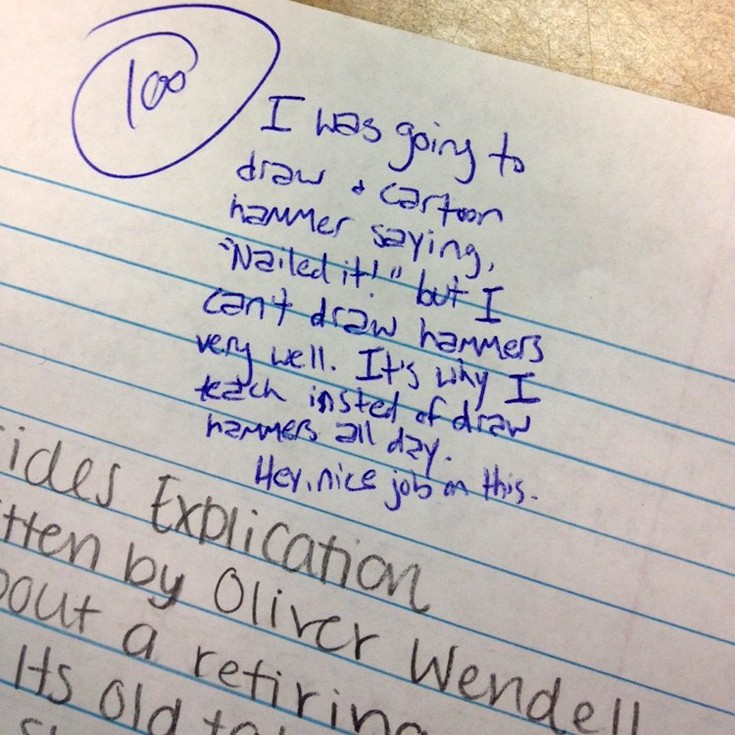 100
I was going to
draw a cartoon
hammer saying,
"Nailed it!" but I
can't draw hammers
very well. It's why I
teach insted of draw
hammers all day.
Hey, nice job on this.
ides Explication
itten by Oliver Wendell
bout a retiring
Its old to